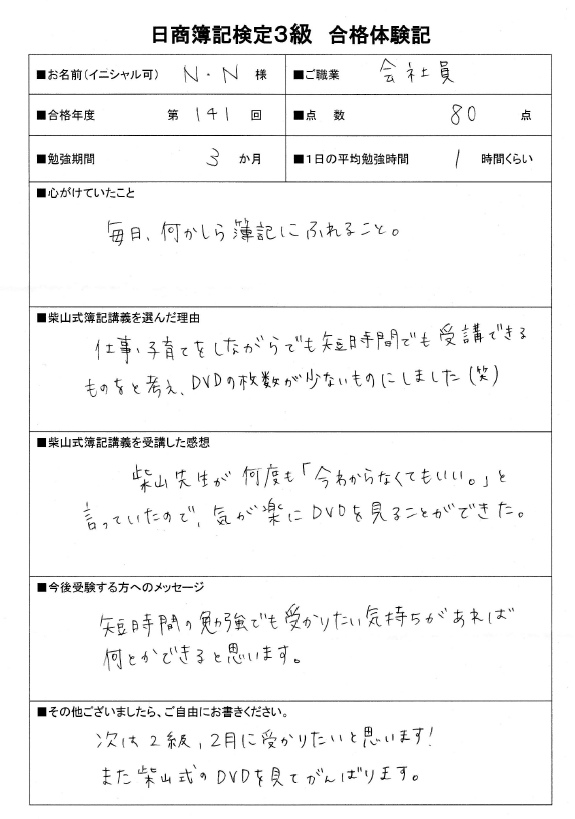 日商簿記検定３級 合格体験記
■お名前（イニシャル可） N・N 様 ■ご職業 会社員
■合格年度 第 141 回 ■点 数 80 点
■勉強期間 3 か月 ■１日の平均勉強時間 1 時間くらい
■心がけていたこと
毎日、何かしら簿記にふれること。
■柴山式簿記講義を選んだ理由
仕事・子育てをしながらでも短時間でも受講できる
ものをと考え、DVDの枚数が少ないものにしました(笑)
■柴山式簿記講義を受講した感想
柴山先生が何度も「今わからなくてもいい。」と
言っていたので、気が楽にDVDを見ることができた。
■今後受験する方へのメッセージ
短時間の勉強でも受かりたい気持ちがあれば
何とかできると思います。
■その他ございましたら、ご自由にお書きください。
次は2級、2月に受かりたいと思います！
また柴山式のDVDを見てがんばります。